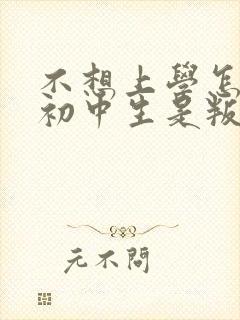 不想上學怎
初中生是叛
元不問